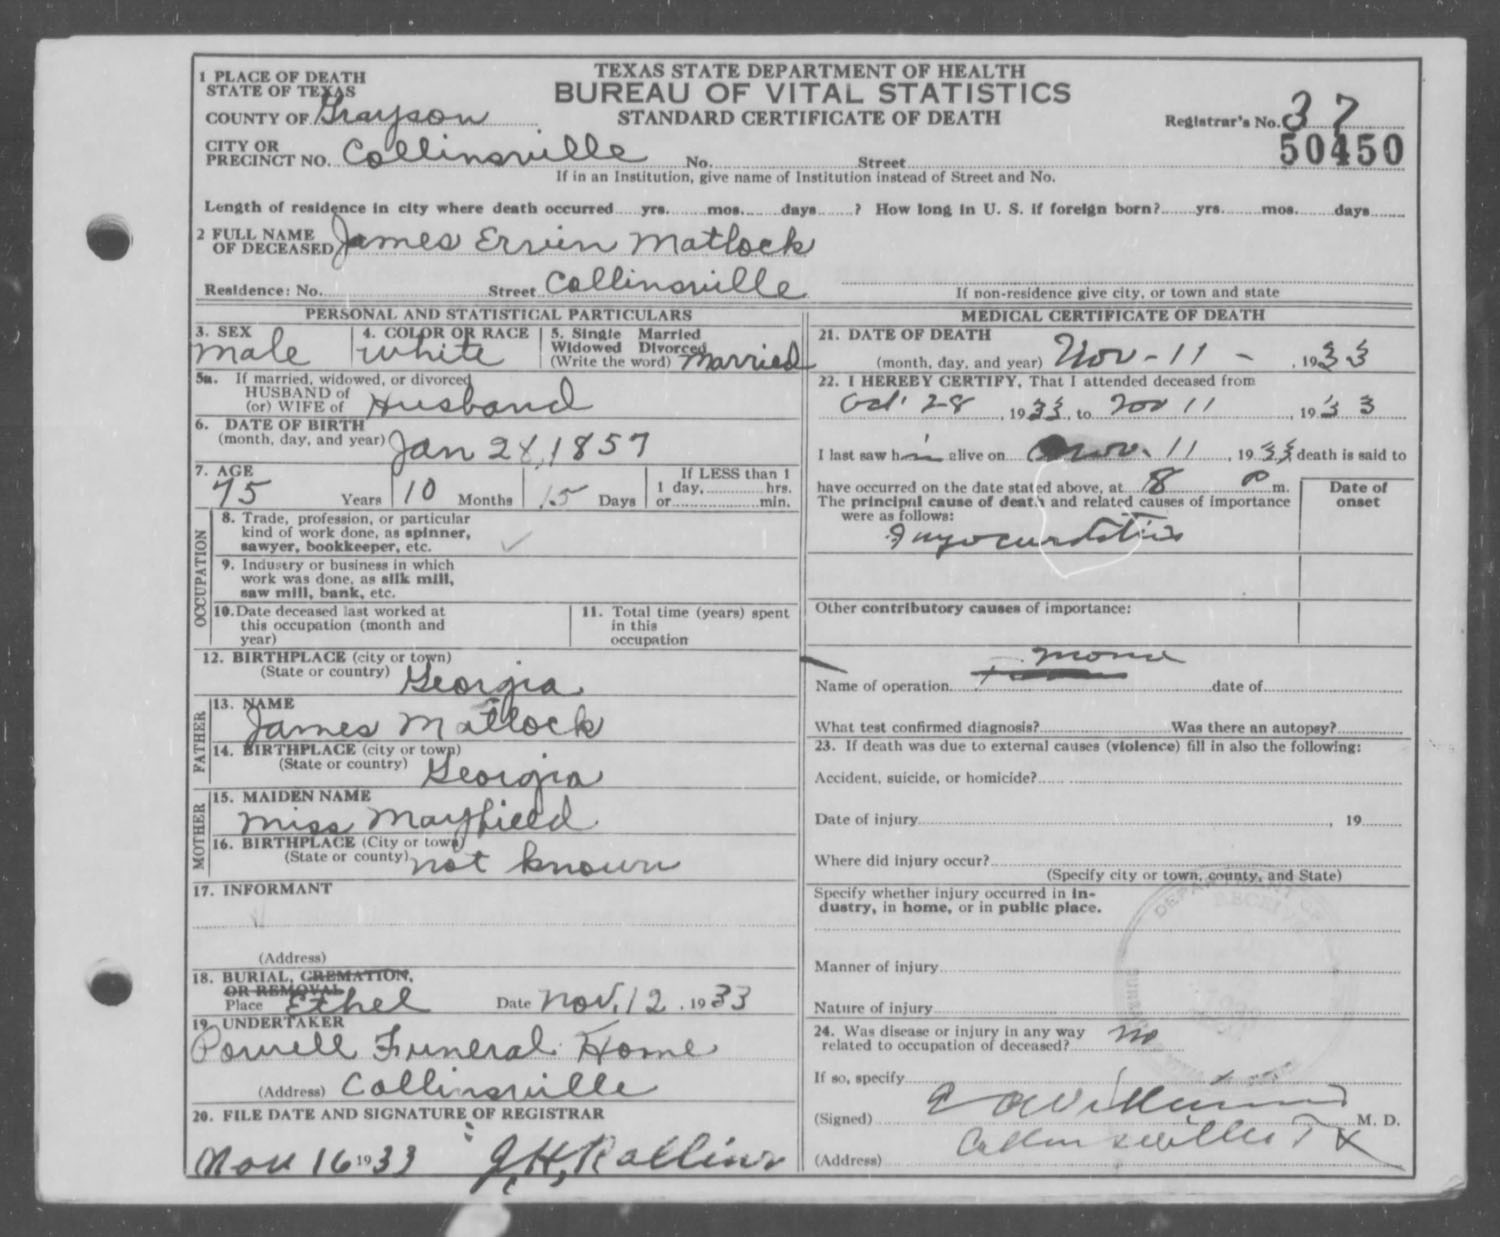 TEXAS STATE DEPARTMENT OF HEALTH
BUREAU OF VITAL STATISTICS
STANDARD CERTIFICATE OF DEATH
1 PLACE OF DEATH
STATE OF TEXAS
COUNTY OF Grayson
Registrar's No. 37
50450
CITY OR
PRECINCT NO. Collinsville No. Street
If in an Institution, give name of Institution instead of Street and No.
Length of residence in city where death occurred yrs. mos. days ? How long in U. S. if foreign born? yrs. mos. days
2 FULL NAME
OF DECEASED James Ervin Matlock
Residence: No. Street Collinsville
If non-residence give city, or town and state
PERSONAL AND STATISTICAL PARTICULARS
3. SEX
male
4. COLOR OR RACE
white
5. Single Married
Widowed Divorced
(Write the word) married
5a. If married, widowed, or divorced
HUSBAND of
(or) WIFE of Husband
6. DATE OF BIRTH
(month, day, and year) Jan 28, 1857
7. AGE
75 Years 10 Months 15 Days
If LESS than 1
1 day, hrs.
or min.
OCCUPATION
8. Trade, profession, or particular
kind of work done, as spinner,
sawyer, bookkeeper, etc.
9. Industry or business in which
work was done, as silk mill,
saw mill, bank, etc.
10. Date deceased last worked at
this occupation (month and
year)
11. Total time (years) spent
in this
occupation
12. BIRTHPLACE (city or town)
(State or country) Georgia
FATHER
13. NAME
James Matlock
14. BIRTHPLACE (city or town)
(State or country) Georgia
MOTHER
15. MAIDEN NAME
miss Mayfield
16. BIRTHPLACE (City or town)
(State or county) not known
17. INFORMANT
(Address)
18. BURIAL, CREMATION,
OR REMOVAL
Place Ethel Date Nov. 12, 1933
19. UNDERTAKER
Powell Funeral Home
(Address) Collinsville
20. FILE DATE AND SIGNATURE OF REGISTRAR
Nov 16 1933 J H Rollins
MEDICAL CERTIFICATE OF DEATH
21. DATE OF DEATH
(month, day, and year) Nov - 11 - , 1933
22. I HEREBY CERTIFY, That I attended deceased from
Oct 28 , 1933, to Nov 11 , 1933
I last saw him alive on Nov. 11 , 1933, death is said to
have occurred on the date stated above, at 8 P m.
The principal cause of death and related causes of importance
were as follows:
Date of
onset
myocarditis
Other contributory causes of importance:
none
Name of operation date of
What test confirmed diagnosis? Was there an autopsy?
23. If death was due to external causes (violence) fill in also the following:
Accident, suicide, or homicide?
Date of injury , 19
Where did injury occur?
(Specify city or town, county, and State)
Specify whether injury occurred in in-
dustry, in home, or in public place.
Manner of injury
Nature of injury
24. Was disease or injury in any way
related to occupation of deceased? no
If so, specify
(Signed) M. D.
(Address) Collinsville TX